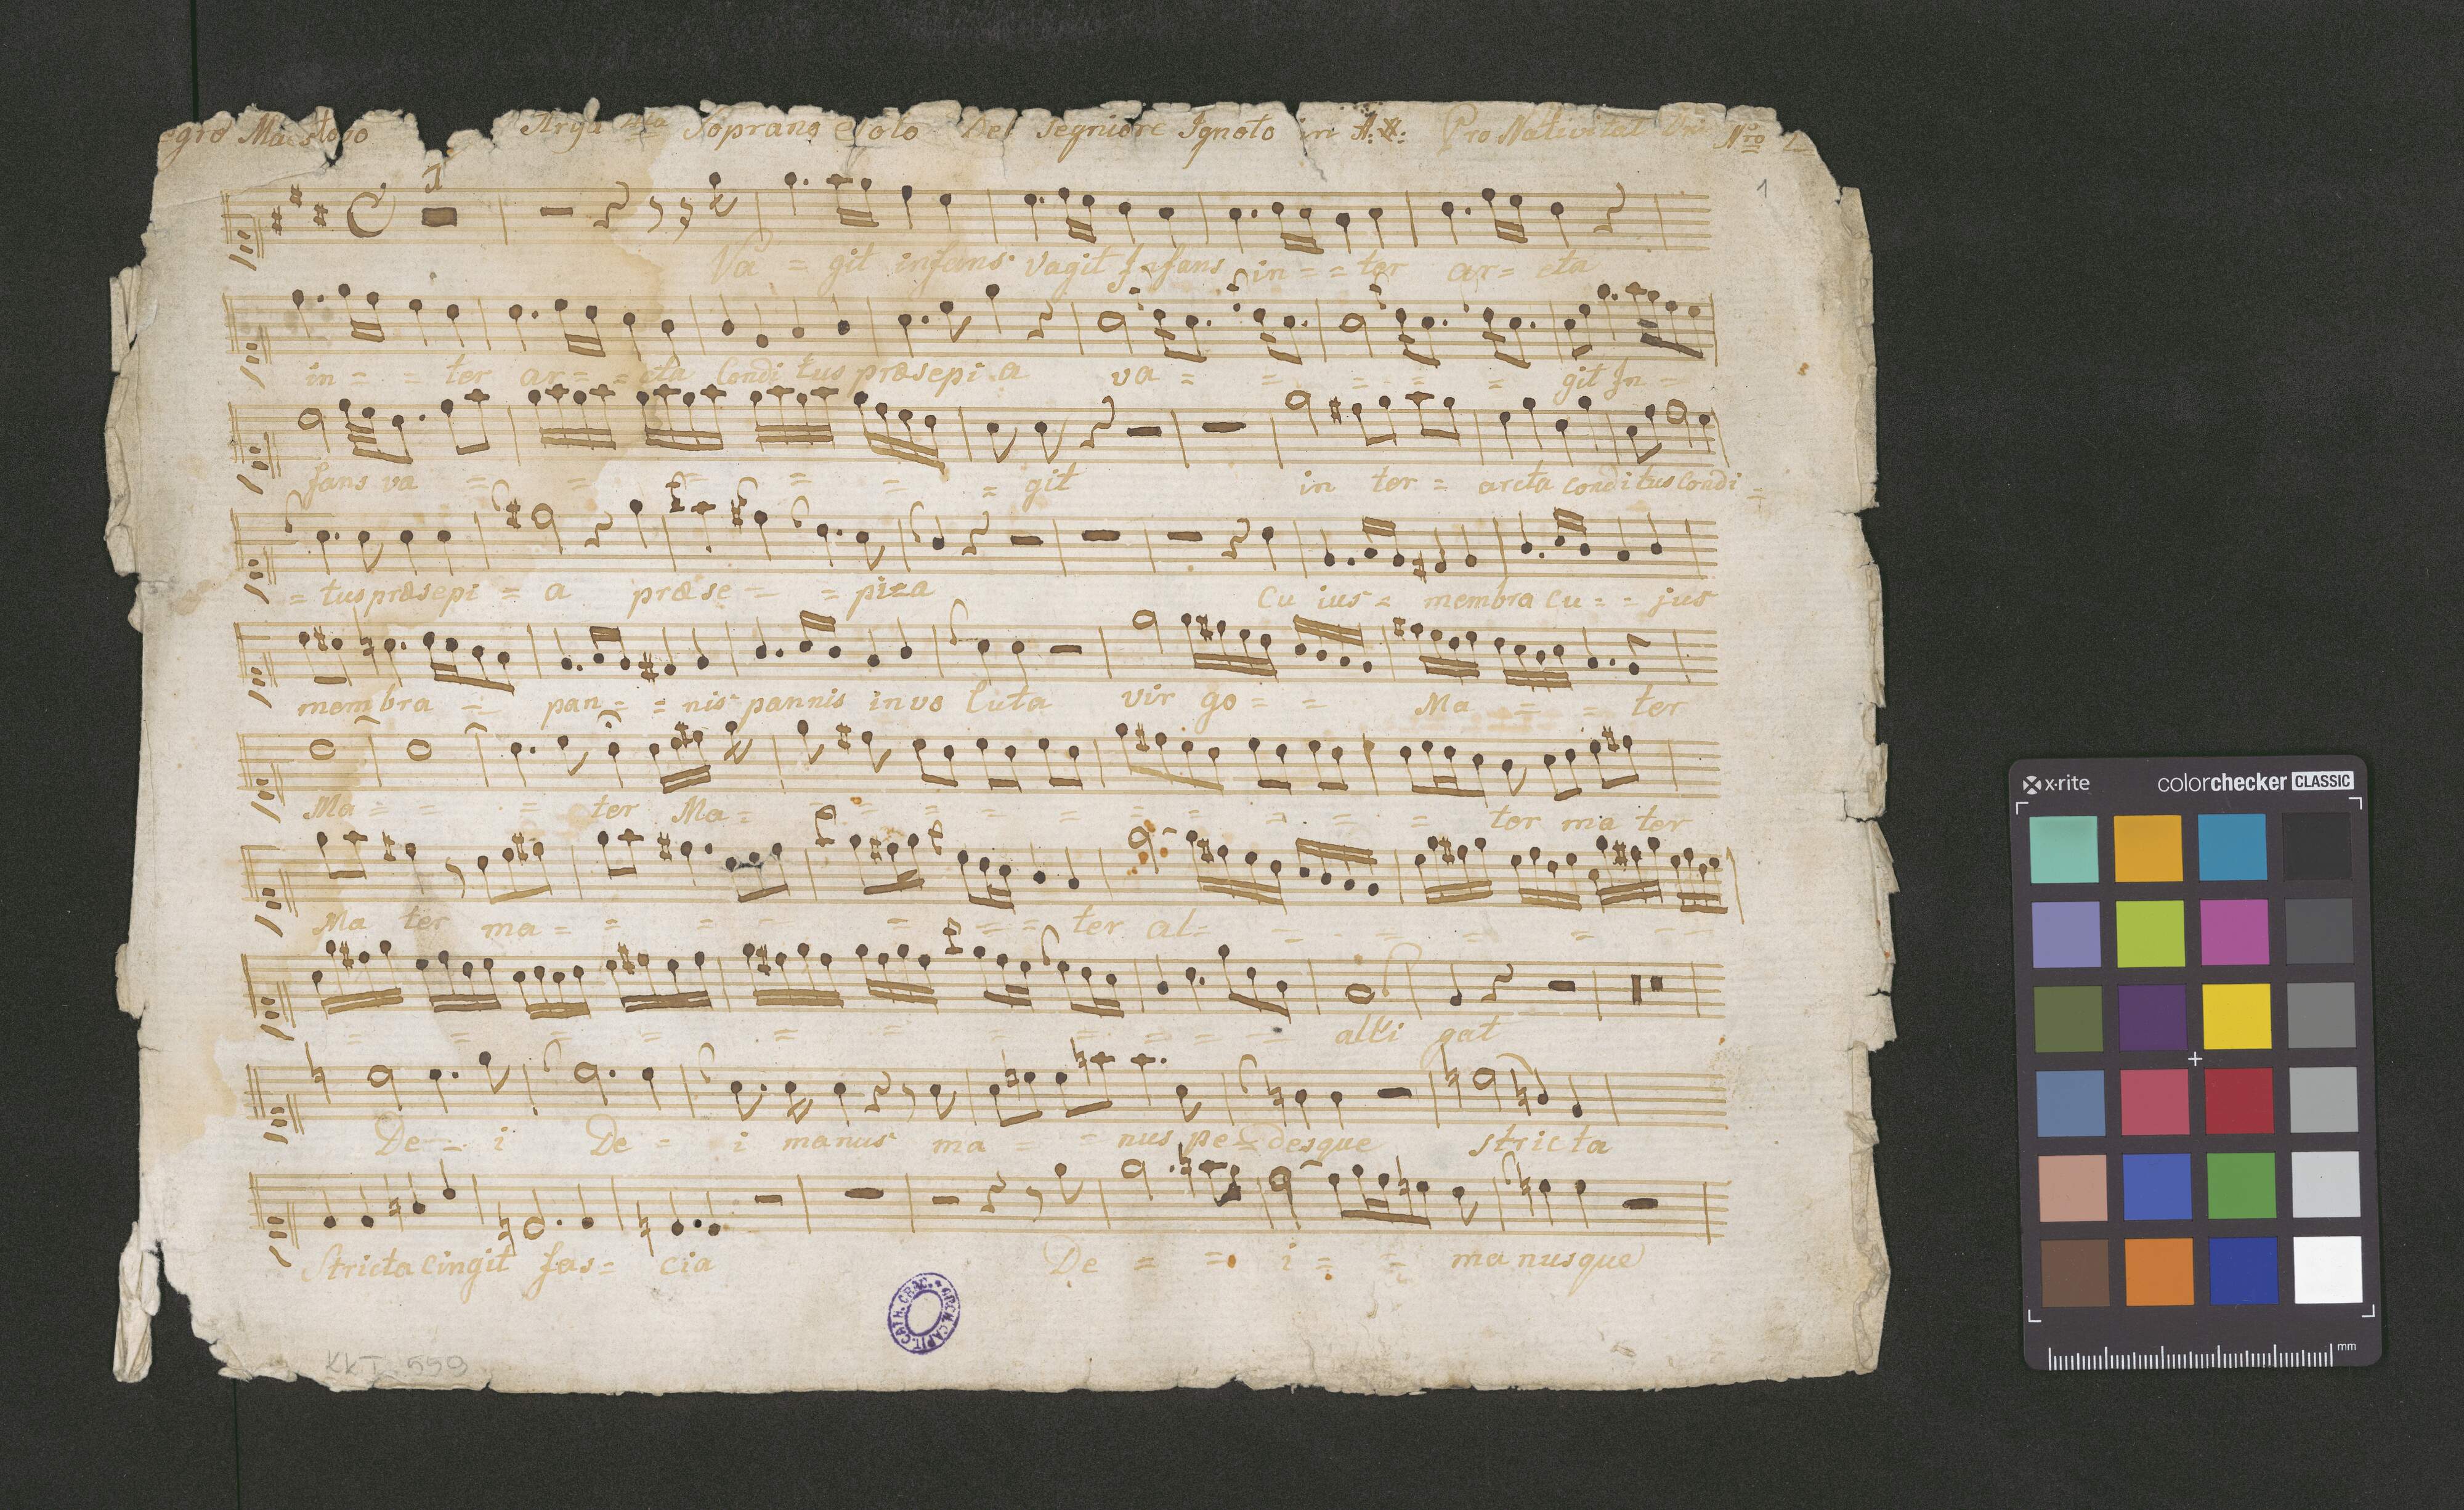 egro Maestoso Arya Soprano e Solo Del Segniore Ignoto in A.#: Pro Nativitat Dni Nro 1
1
1
Va = git infans vagit Infans in = = ter ar = cta
in = = ter ar = = cta Condi tus præsepi a va = = = = = git In =
fans va = = = = = = git in ter = arcta conditus Condi =
= tus præsepi = a præ se = = pi=a Cu ius = membra cu = = jus
membra = pan = = nis pannis invo luta vir go = = Ma = = ter
Ma = = = ter Ma = = = = = = = = = = = ter ma ter
Ma ter ma = = = = = = = ter al = = = = = = = =
= = = = = = = = = = = alli gat
De = = i De = i manus ma = = nus pe = desque stricta
Stricta cingit fas = cia De = = i = = manusque
ARCH. CAPIT. CATH. CRAC.
KKT 559
x·rite colorchecker CLASSIC
mm